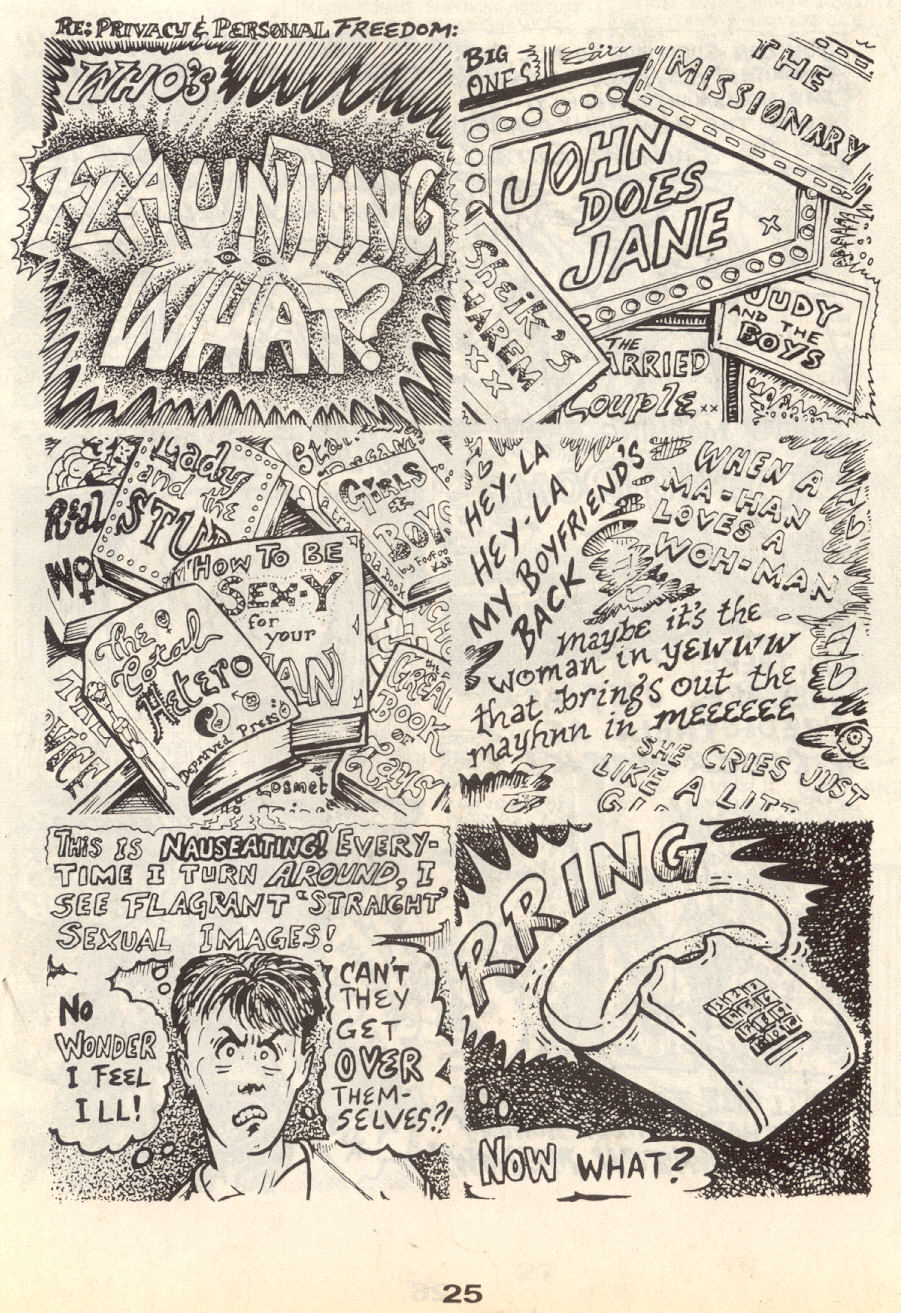 RE: PRIVACY & PERSONAL FREEDOM:
WHO'S
FLAUNTING
WHAT?
BIG
ONES
THE
MISSIONARY
JOHN
DOES
JANE
SHEIK'S
HAREM
XXX
JUDY
AND THE
BOYS
THE
MARRIED
COUPLE XX
Real
WO
Lady
and the
STUD
GIRLS
&
BOYS
HOW TO BE
SEX-Y
for
your
MAN
The
Total
Hetero
Deprived Press
the
GREAT
BOOK
OF
Lays
Cosmet
HEY-LA
HEY-LA
MY BOYFRIEND'S
BACK
WHEN A
MA-HAN
LOVES A
WOH-MAN
maybe it's the
woman in YEWWW
that brings out the
mayhnn in MEEEEEE
SHE CRIES JUST
LIKE A LITT
GI
THIS IS NAUSEATING! EVERY-
TIME I TURN AROUND, I
SEE FLAGRANT "STRAIGHT"
SEXUAL IMAGES!
NO
WONDER
I FEEL
ILL!
CAN'T
THEY
GET
OVER
THEM-
SELVES?!
RRING
NOW WHAT?
25